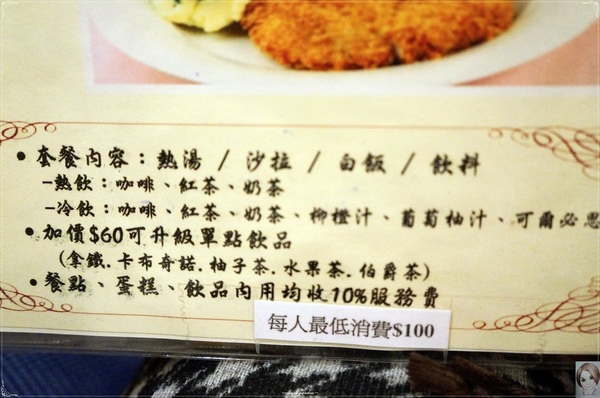 • 套餐內容：熱湯 / 沙拉 / 白飯 / 飲料
-熱飲：咖啡、紅茶、奶茶
-冷飲：咖啡、紅茶、奶茶、柳橙汁、葡萄柚汁、可爾必思
• 加價$60可升級單點飲品
(拿鐵.卡布奇諾.柚子茶.水果茶.伯爵茶)
• 餐點、蛋糕、飲品內用均收10%服務費
每人最低消費$100